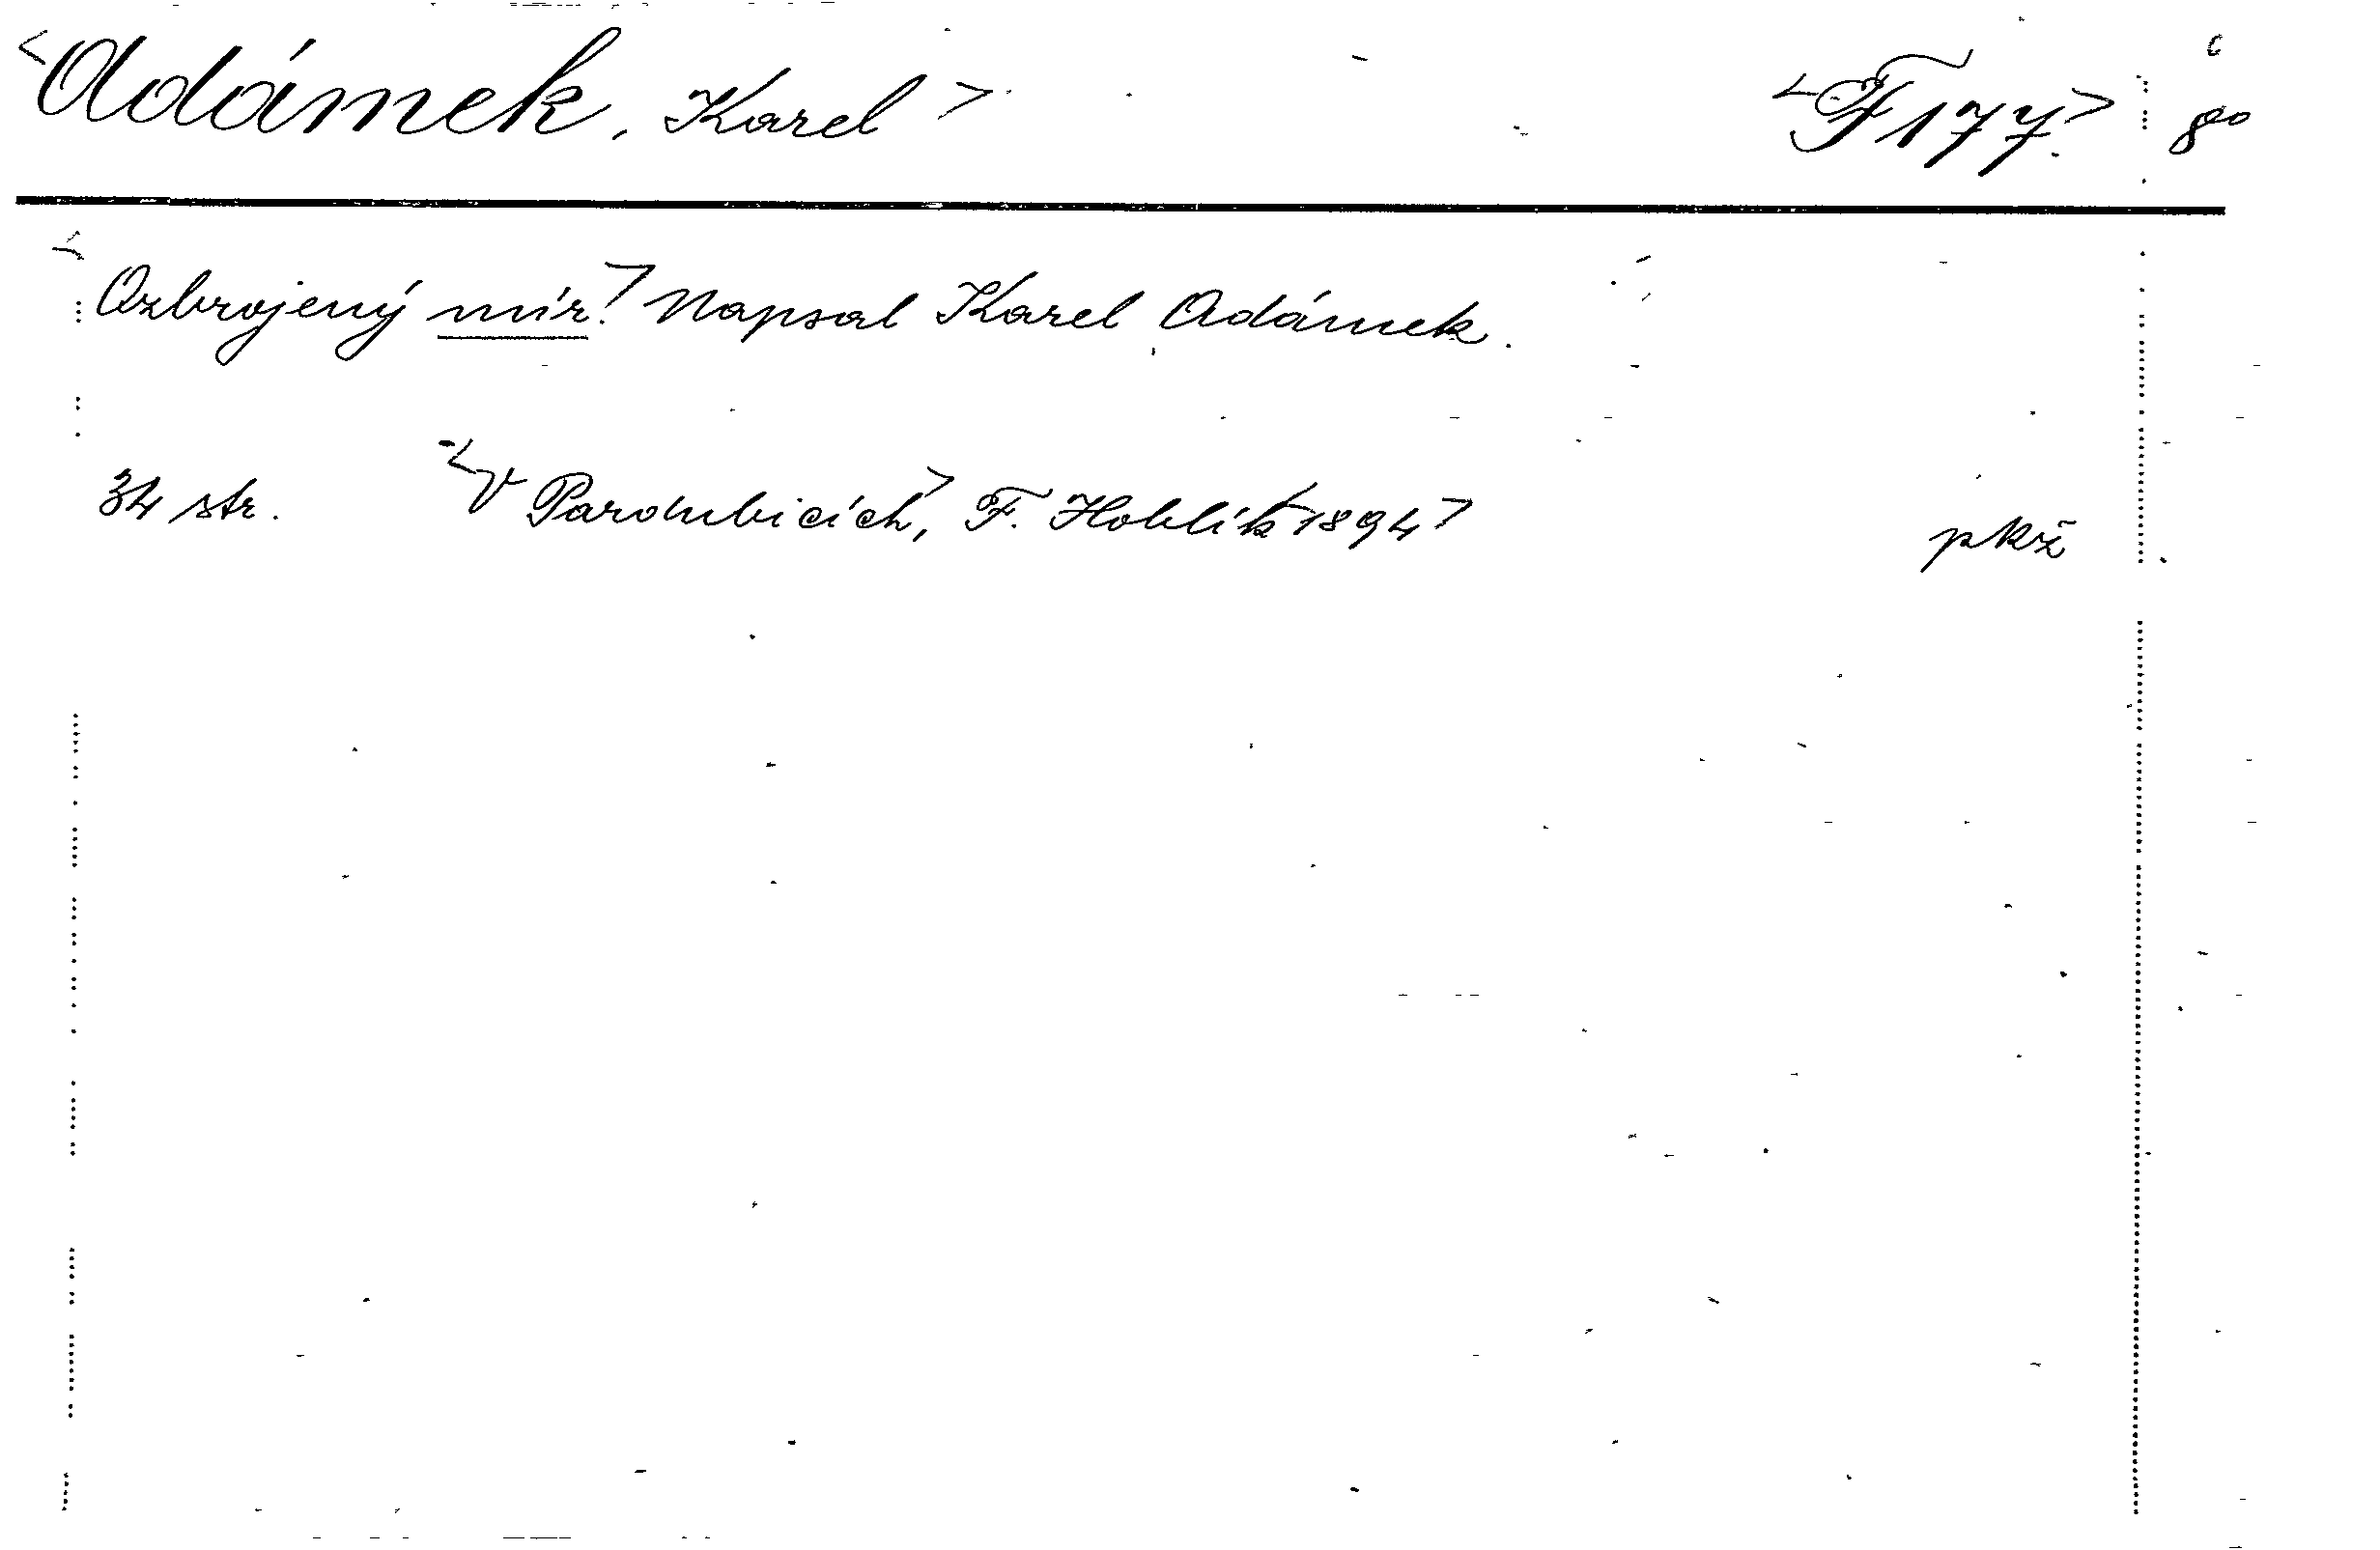 <Adámek, Karel> <F 177.> 8°
<Ozbrojený mír.> Napsal Karel Adámek.
34 str. <V Pardubicích>, F. Hoblík 1894> pkž